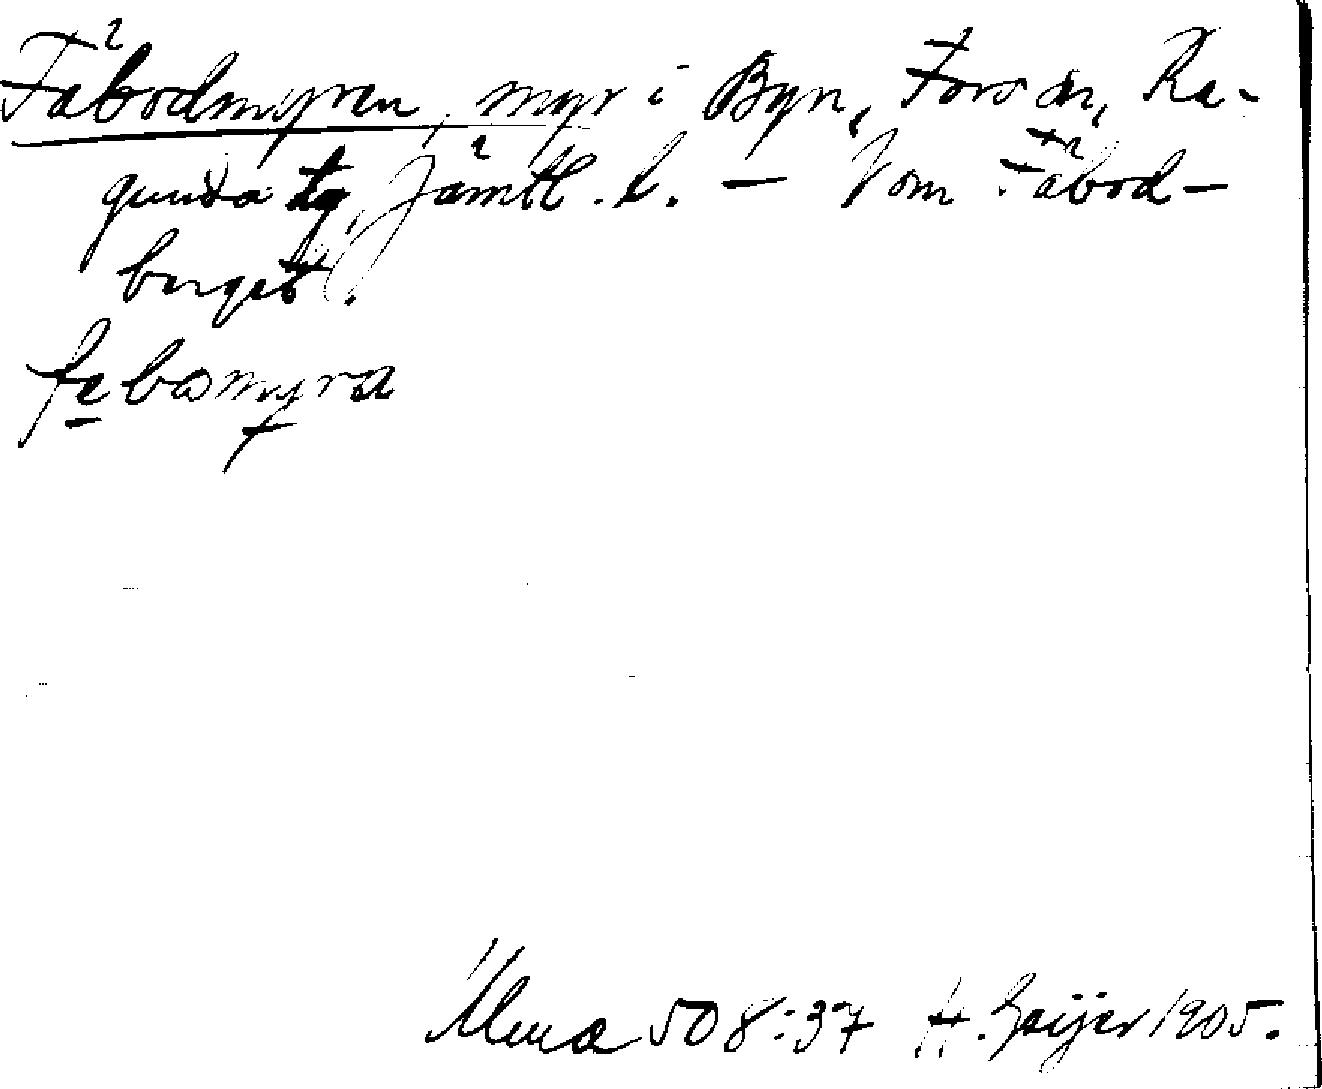 Fäbodmyren, myr i Byn, Fors sn, Ra-
gunda tg, Jämtl. l. — Vom Fäbod-
berget.
febomyra
Ulma 508:37 H. Geijer 1905.